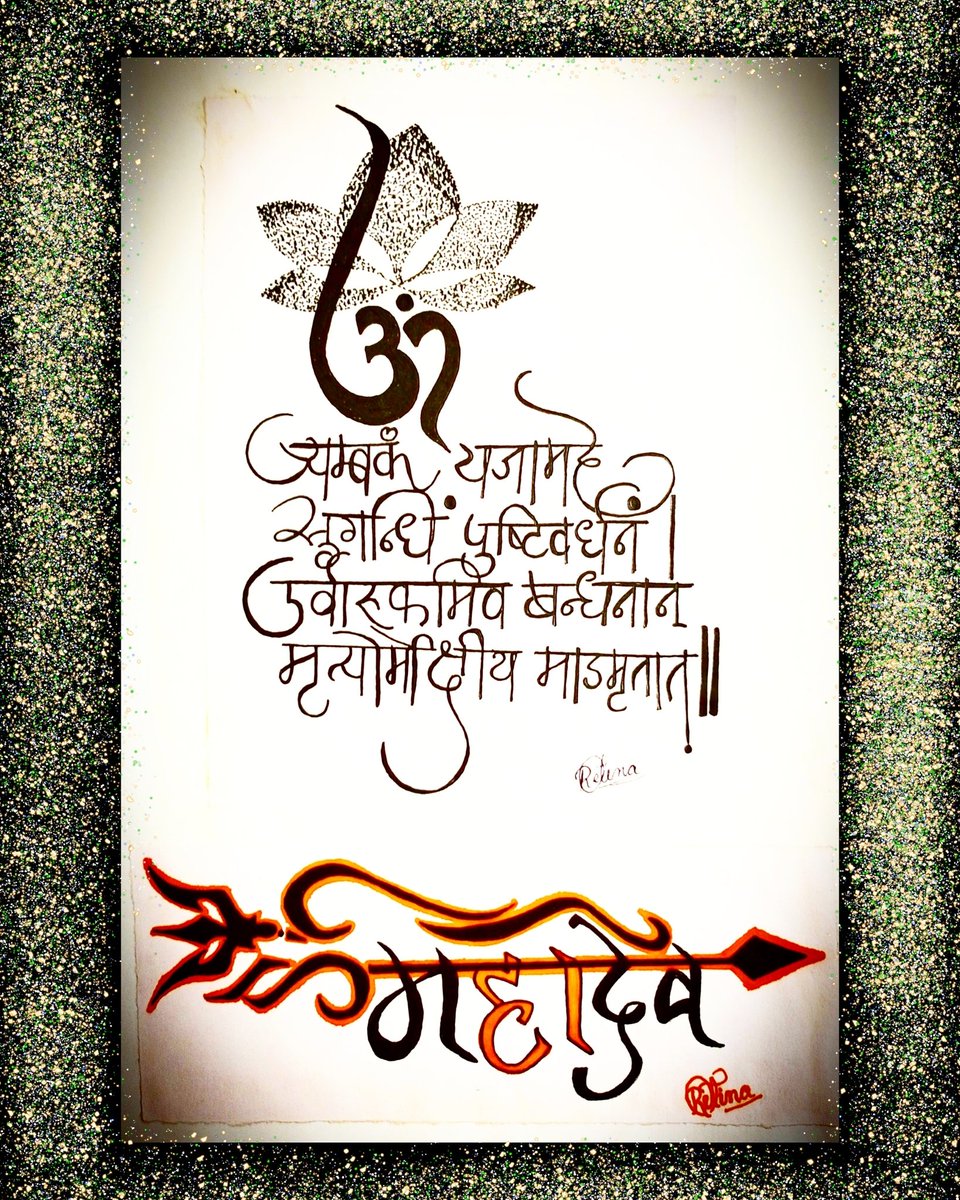 ॐ
त्र्यम्बकं यजामहे
सुगन्धिं पुष्टिवर्धनं ।
उर्वारुकमिव बन्धनान्
मृत्योर्मोक्षीय माऽमृतात् ॥
Retina
महादेव
Retina